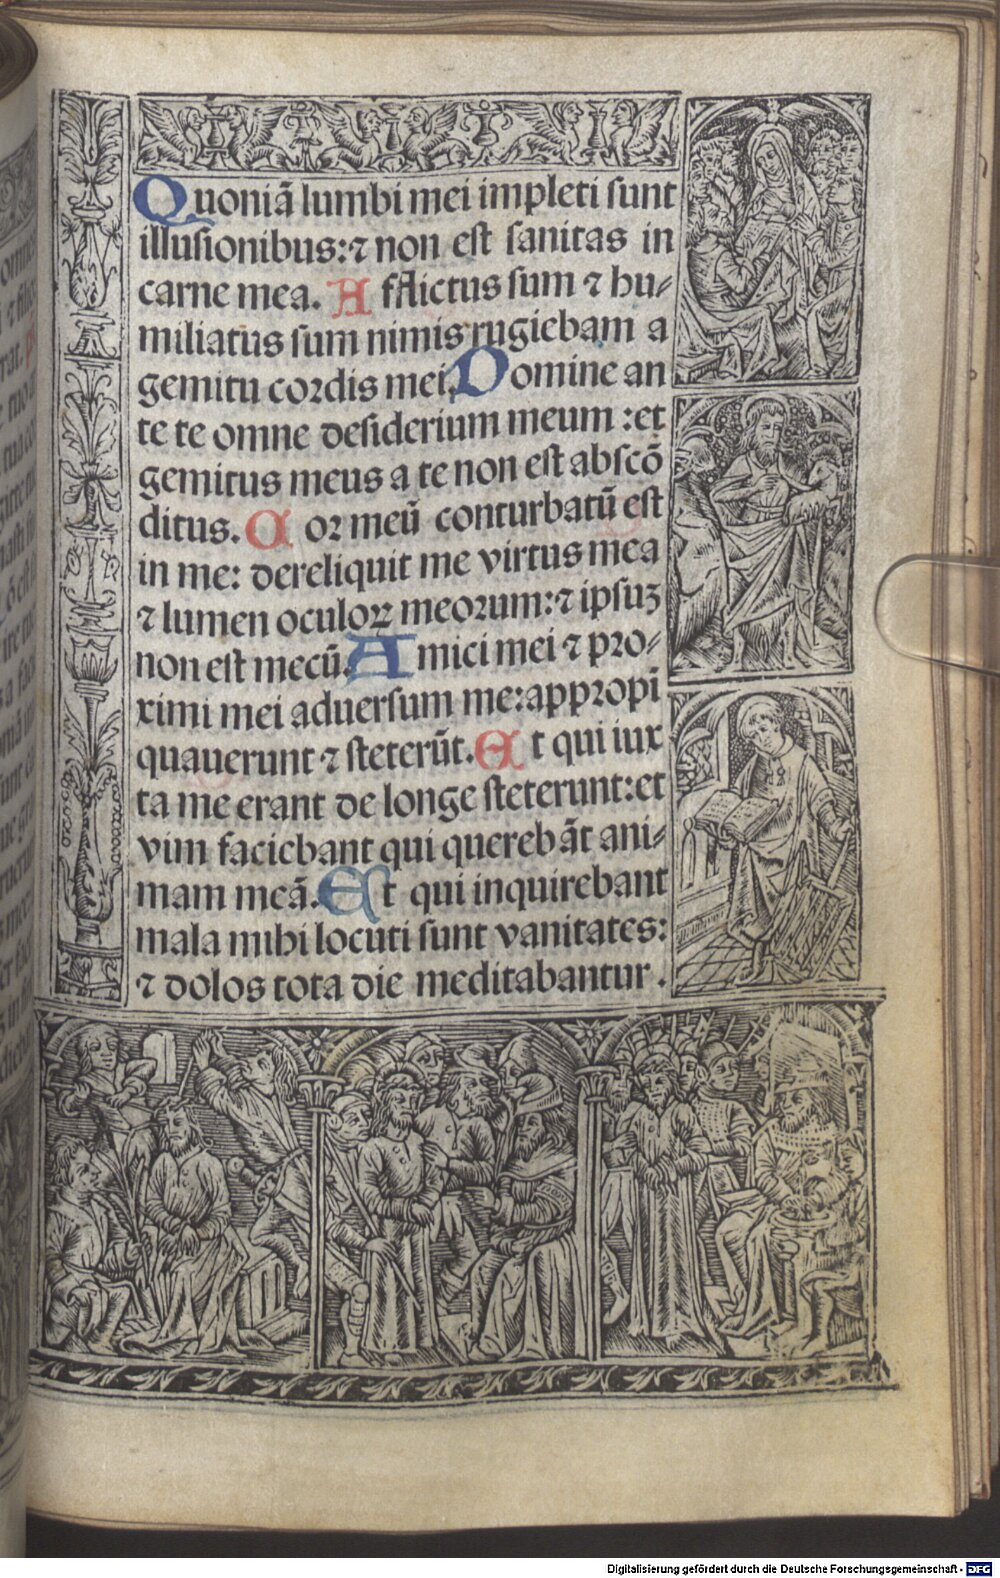 Quoniã lumbi mei impleti sunt
illusionibus: ⁊ non est sanitas in
carne mea. Afflictus sum ⁊ hu⸗
miliatus sum nimis rugiebam a
gemitu cordis mei. Domine an
te te omne desiderium meum : et
gemitus meus a te non est abscõ
ditus. Cor meũ conturbatũ est
in me: dereliquit me virtus mea
⁊ lumen oculoꝝ meorum: ⁊ ipsuꝫ
non est mecũ. Amici mei ⁊ pro⸗
ximi mei aduersum me: appropĩ
quauerunt ⁊ steterũt. Et qui iux
ta me erant de longe steterunt: et
vim faciebant qui querebãt ani⸗
mam meã. Et qui inquirebant
mala mihi locuti sunt vanitates:
⁊ dolos tota die meditabantur.
Digitalisierung gefördert durch die Deutsche Forschungsgemeinschaft - DFG